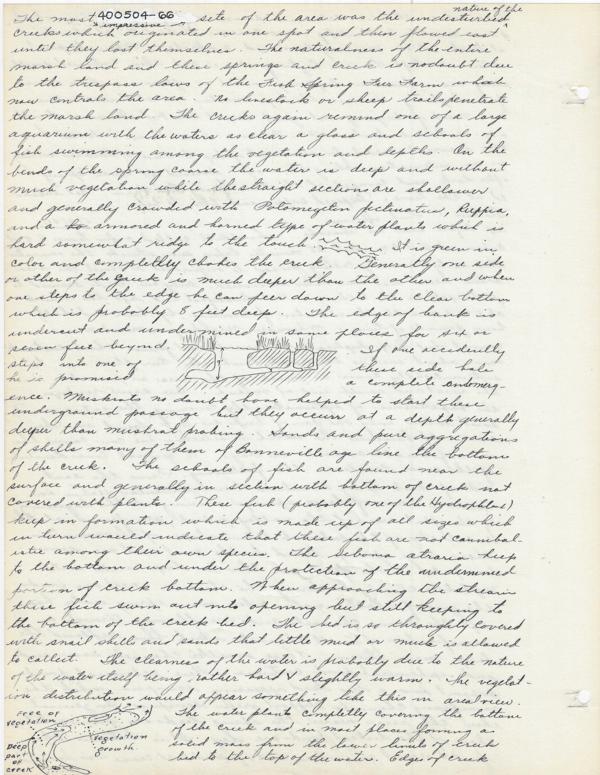 nature of the
The most impressive site of the area was the undesturbed
400504-66
creeks which originated in one spot and then flowed east
until they lost themselves. The naturalness of the entire
marsh land and these springs and creek is no doubt due
to the trespass laws of the Fish Spring Fur Farm which
now controls the area. No livestock or sheep trails penetrate
the marsh land. The creeks again remind one of a large
aquarium with the waters as clear a glass and schools of
fish swimming among the vegetation and depths. On the
bends of the spring coarse the water is deep and without
much vegetation while the straight sections are shallower
and generally crowded with Potomegeton pictinatus, Ruppia,
and a armored and horned type of water plants which is
hard somewhat ridge to the touch. It is green in
color and completley chokes the creek. Generally one side
or other of the creek is much deeper than the other and when
one steps to the edge he can peer down to the clear bottom
which is probably 8 feet deep. The edge of bank is
undercut and undermined in some places for six or
seven feet beyond. If one accidently
steps into one of these side hole
he is promised a complete submerg-
ence. Muskrats no doubt have helped to start these
underground passage but they occurr at a depth generally
deeper than muskrat probing. Sands and pure aggregations
of shells many of them of Bonneville age line the bottom
of the creek. The schools of fish are found near the
surface and generally in section with bottom of creek not
covered with plants. These fish (probably one of the Hydrophlox)
keep in formation which is made up of all sizes which
in turn would indicate that these fish are not cannibal-
istic among their own species. The atraria keep
to the bottom and under the protection of the undermined
portion of creek bottom. When approaching the stream
these fish swim out into opening but still keeping to
the bottom of the creek bed. The bed is so throughly covered
with snail shells and sands that little mud or muck is allowed
to collect. The clearness of the water is probably due to the nature
of the water itself being rather hard & slightly warm. The vegetat-
ion distribution would appear something like this in areal view.
free of vegetation
Deep part of creek
vegetation growth
The water plants completly covering the bottom
of the creek and in most places forming a
solid mass from the lower limits of creek
bed to the top of the water. Edges of creek